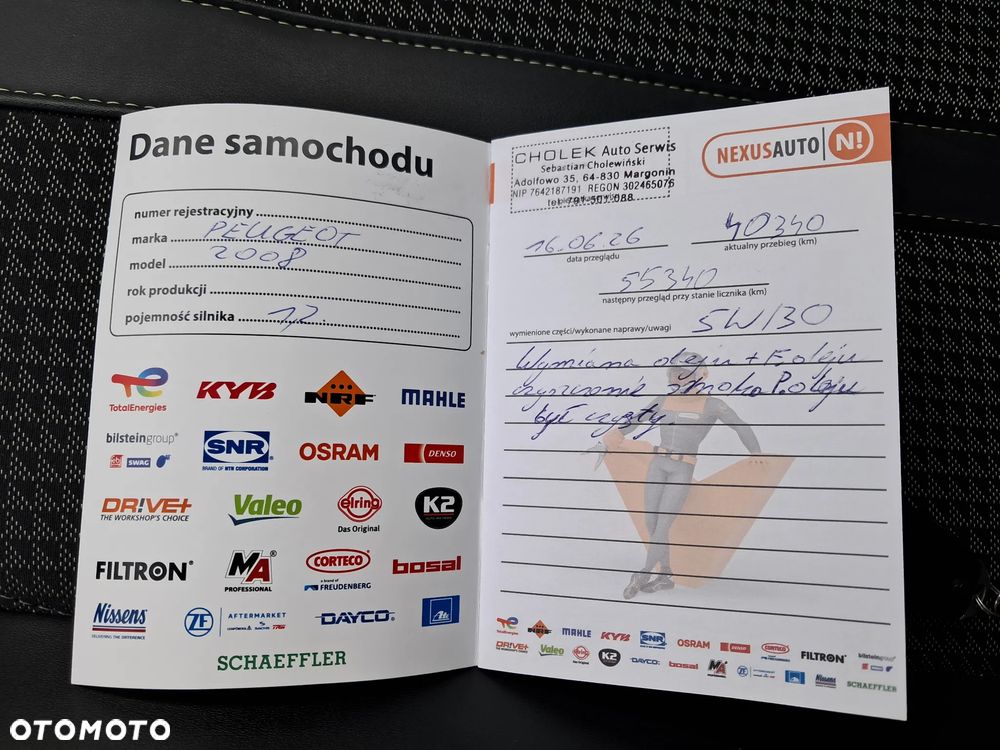 Dane samochodu
numer rejestracyjny
marka PEUGEOT
model 2008
rok produkcji
pojemność silnika 1,2
TotalEnergies
KYB
NRF
MAHLE
bilsteingroup®
febi SWAG
SNR
BRAND OF NTN CORPORATION
OSRAM
DENSO
DR!VE+
THE WORKSHOP'S CHOICE
Valeo
elring
Das Original
K2
FILTRON®
MA®
PROFESSIONAL
CORTECO
a brand of
FREUDENBERG
bosal
Nissens
DELIVERING THE DIFFERENCE
ZF AFTERMARKET
LEMFÖRDER SACHS TRW
DAYCO®
ATE
SCHAEFFLER
CHOLEK Auto Serwis
Sebastian Cholewiński
Adolfowo 35, 64-830 Margonin
NIP 7642187191 REGON 302465076
NEXUSAUTO N!
16.06.26
data przeglądu
40340
aktualny przebieg (km)
55340
następny przegląd przy stanie licznika (km)
wymienione części/wykonane naprawy/uwagi 5W/30
Wymiana oleju + F. oleju
czyszczenie smoka P. oleju
był czysty.
TotalEnergies
NRF
MAHLE
KYB
SNR
OSRAM
DENSO
CORTECO
FILTRON®
bilsteingroup®
DR!VE+
Valeo
elring
K2
DAYCO
bosal
MA
ZF
ATE
Nissens
SCHAEFFLER
OTOMOTO